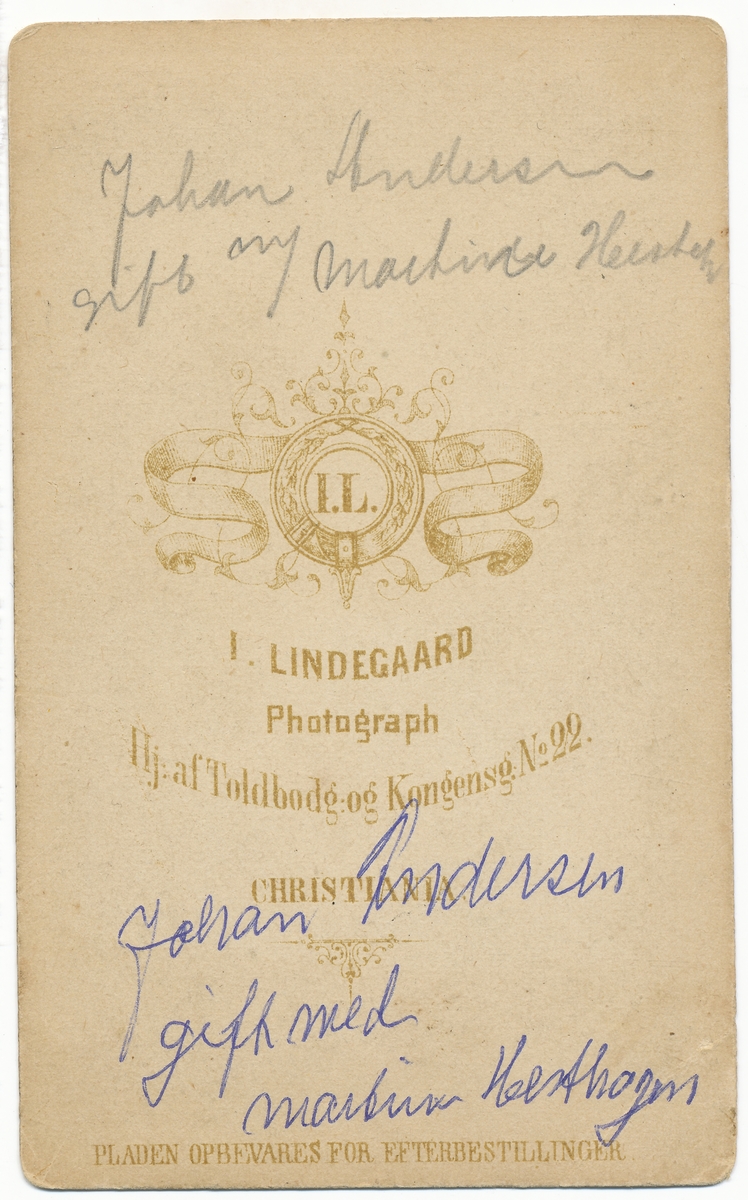 Johan Andersen
gift m/ Martine Hesteh
I.L.
I. LINDEGAARD
Photograph
Hj: af Toldbodg: og Kongensg. No 22.
CHRISTIANIA
Johan Andersen
gift med
Martine Hesthagen
PLADEN OPBEVARES FOR EFTERBESTILLINGER.